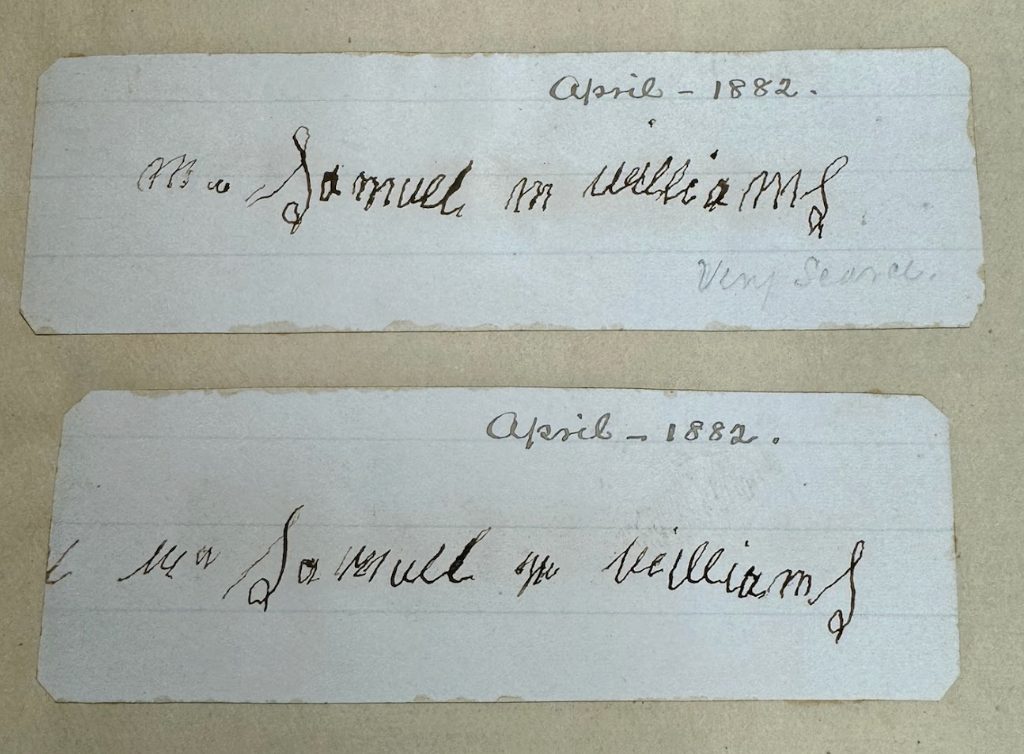 April - 1882.
Mr Samuel m Williams
Very Scarce.
April - 1882.
Mr Samuel m Williams